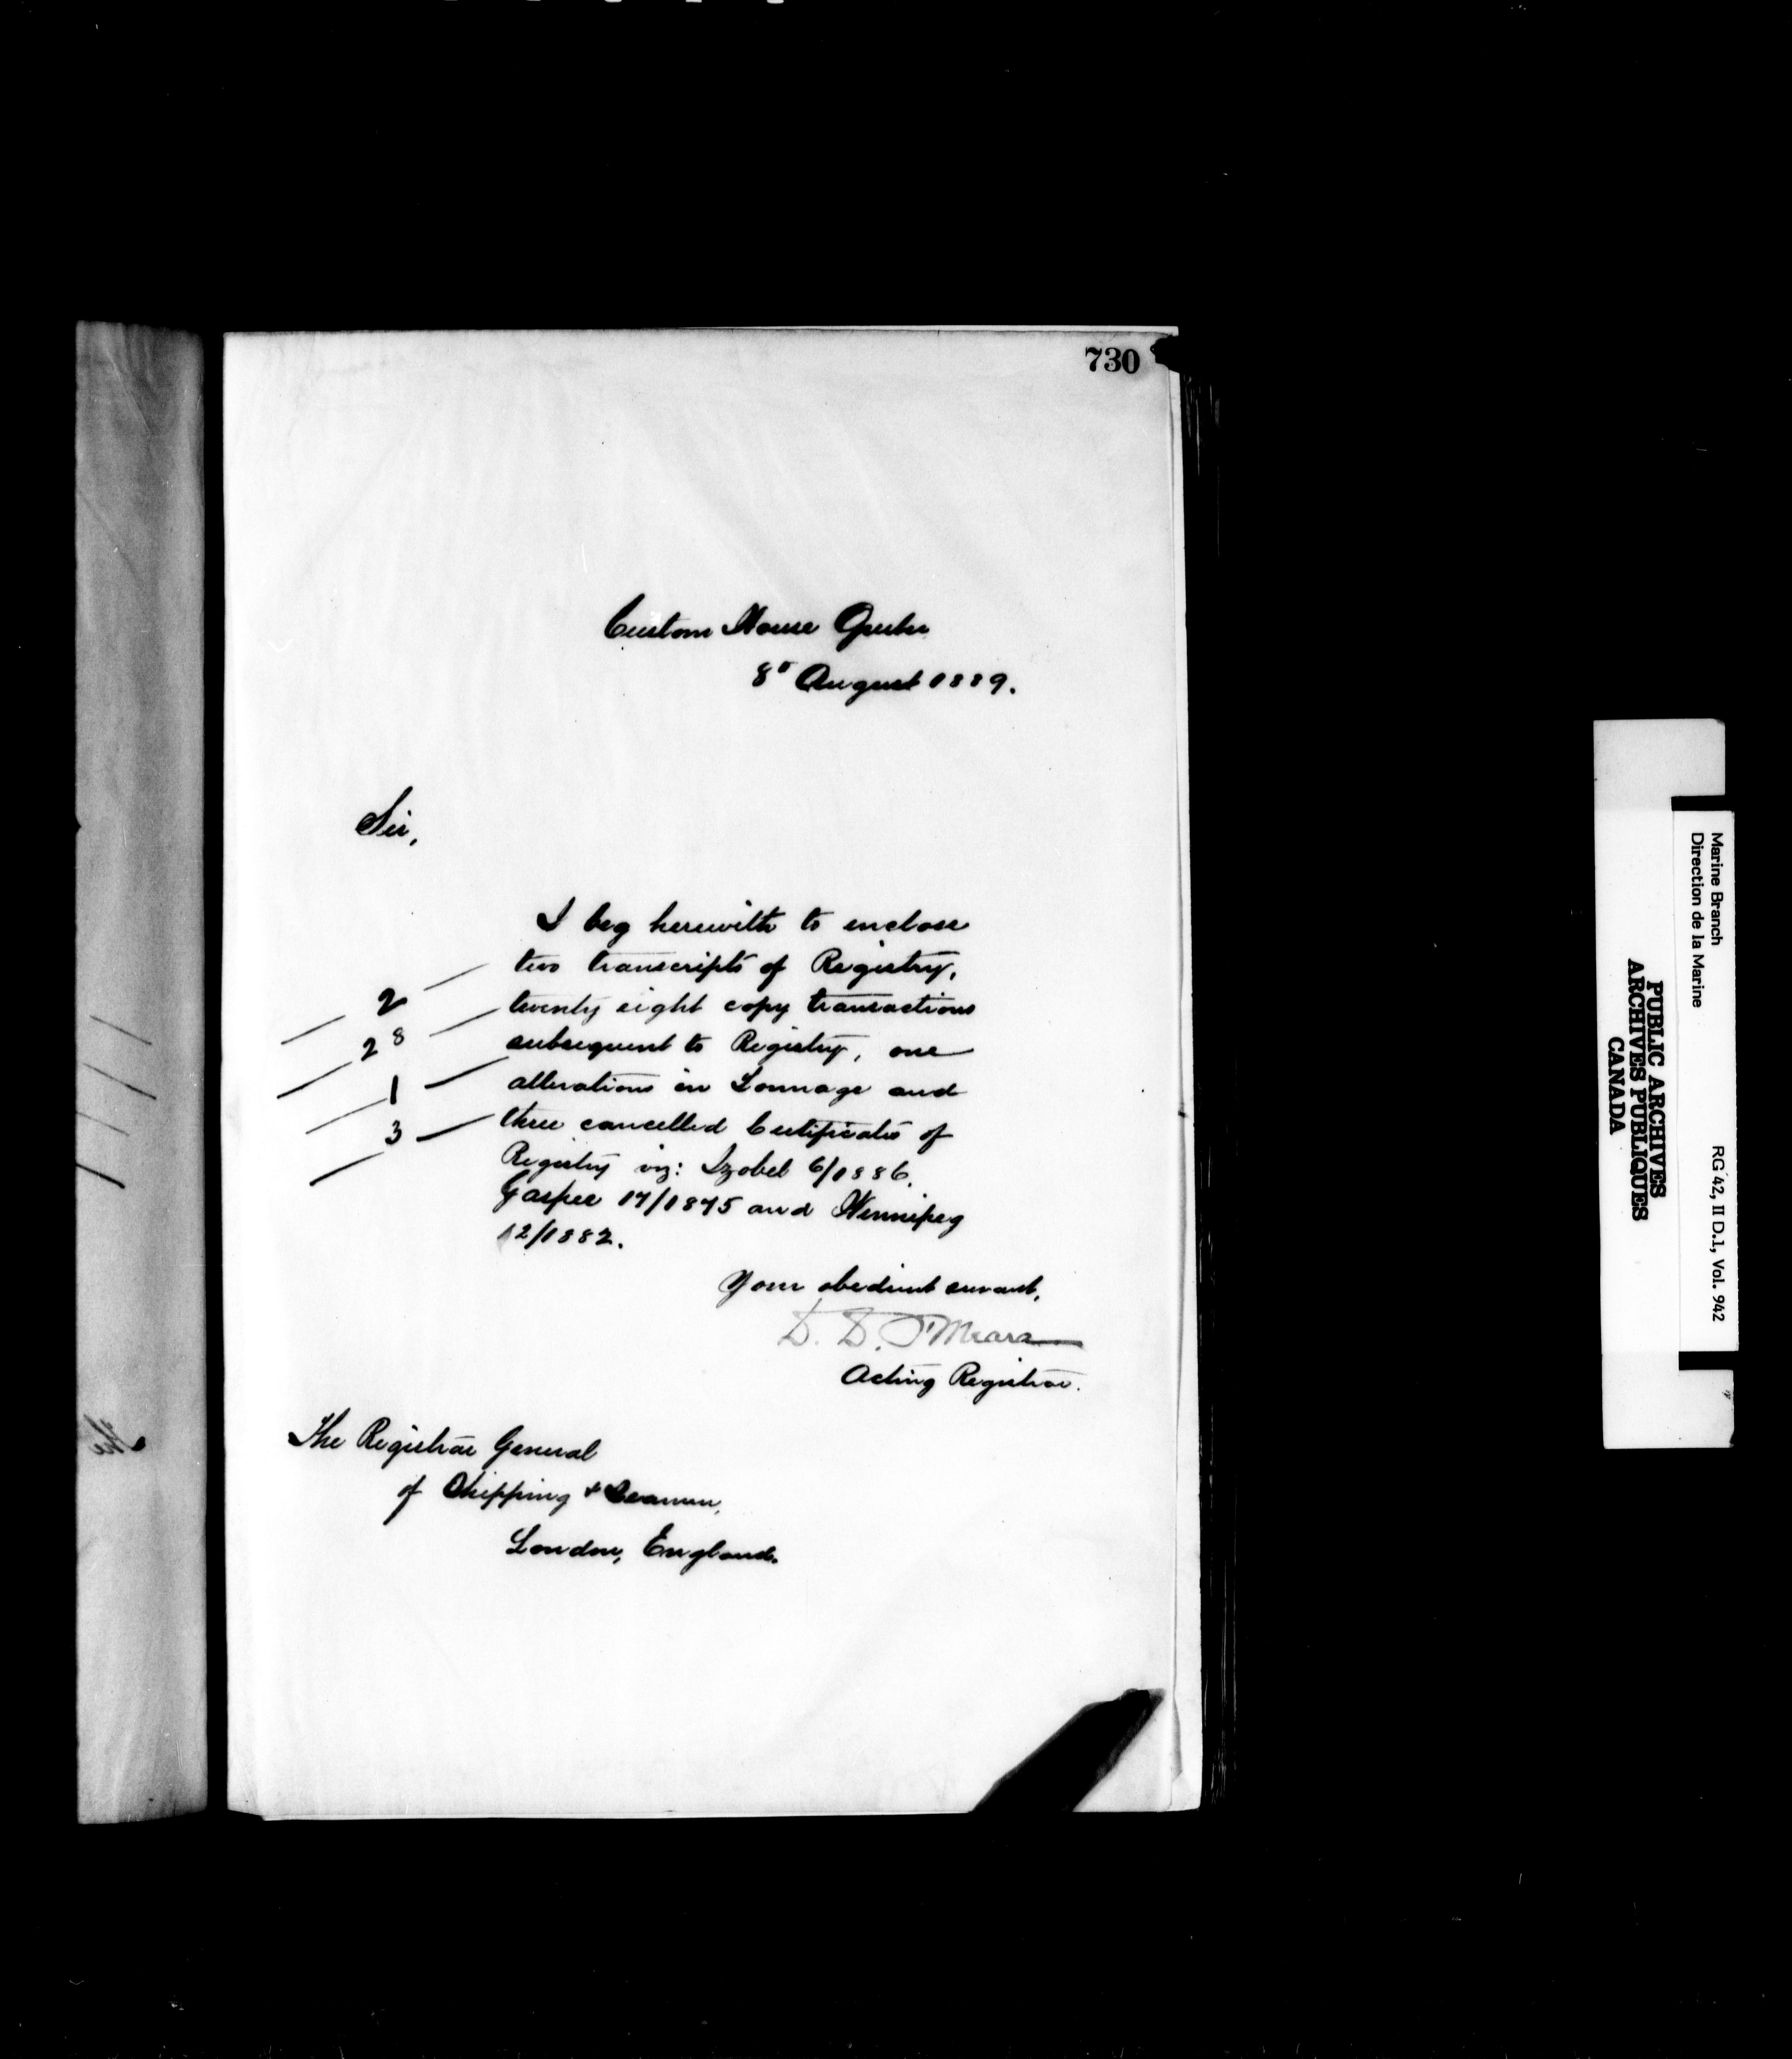 730
Custom House Quebec
8" August 1889.
Sir,
I beg herewith to enclose
two transcripts of Registry,
2
twenty eight copy transactions
28
subsequent to Registry, one
1
alterations in Tonnage and
3
three cancelled Certificates of
Registry viz: Izobel 6/1886.
Gaspee 17/1875 and Winnipeg
12/1882.
Your obedient servant,
D. D. O'Meara
Acting Registrar.
The Registrar General
of Shipping & Seamen,
London, England.
Marine Branch
Direction de la Marine
RG 42, II D.1, Vol. 942
PUBLIC ARCHIVES
ARCHIVES PUBLIQUES
CANADA